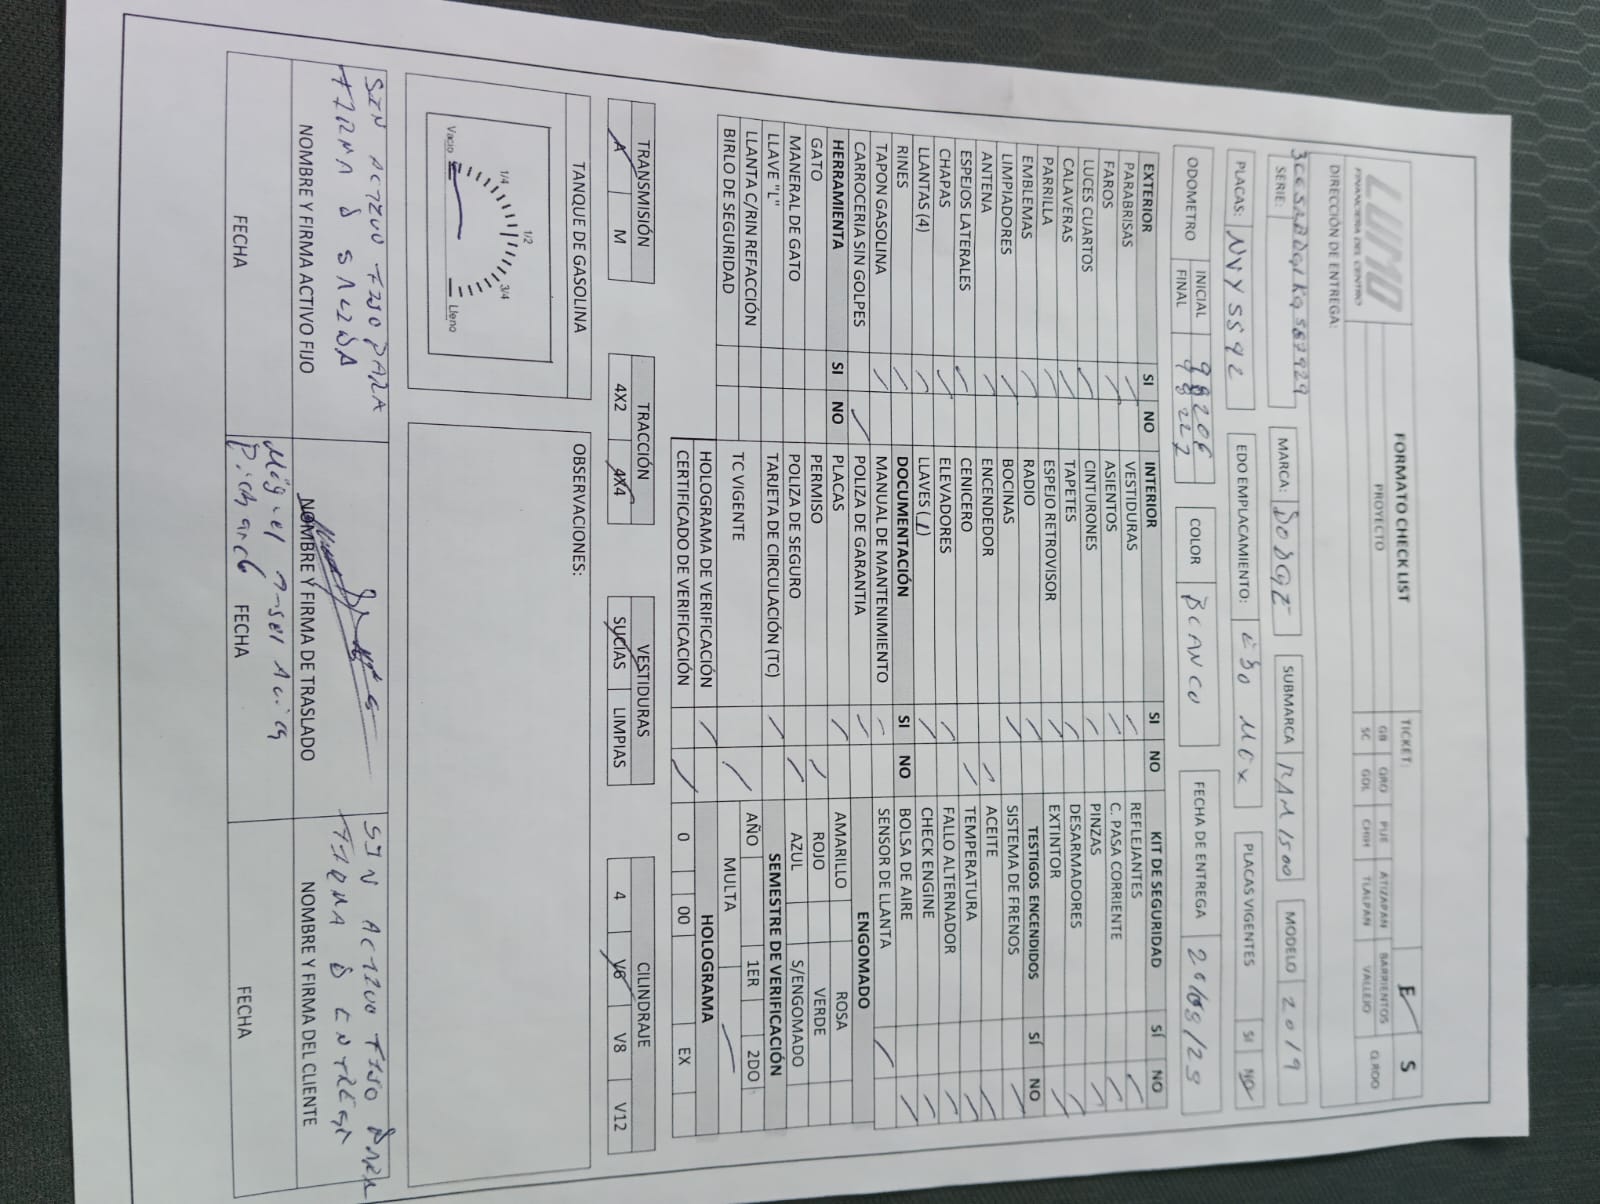 LUMO
FINANCIERA DEL CENTRO
FORMATO CHECK LIST
PROYECTO
TICKET:
E S
GB QRO PUE ATIZAPAN BARRIENTOS Q.ROO
SC GDL CHIH TLALPAN VALLEJO
DIRECCIÓN DE ENTREGA:
SERIE:
MARCA: DODGE
SUBMARCA RAM 1500
MODELO 2019
PLACAS: NVY 5592
EDO EMPLACAMIENTO: EDO MEX
PLACAS VIGENTES SI NO
ODOMETRO INICIAL 98206
FINAL 98222
COLOR BLANCO
FECHA DE ENTREGA
EXTERIOR SI NO INTERIOR SI NO KIT DE SEGURIDAD SÍ NO
PARABRISAS VESTIDURAS REFLEJANTES
FAROS ASIENTOS C. PASA CORRIENTE
LUCES CUARTOS CINTURONES PINZAS
CALAVERAS TAPETES DESARMADORES
PARRILLA ESPEJO RETROVISOR EXTINTOR
EMBLEMAS RADIO TESTIGOS ENCENDIDOS SÍ NO
LIMPIADORES BOCINAS SISTEMA DE FRENOS
ANTENA ENCENDEDOR ACEITE
ESPEJOS LATERALES CENICERO TEMPERATURA
CHAPAS ELEVADORES FALLO ALTERNADOR
LLANTAS (4) LLAVES (1) CHECK ENGINE
RINES DOCUMENTACIÓN SI NO BOLSA DE AIRE
TAPON GASOLINA MANUAL DE MANTENIMIENTO SENSOR DE LLANTA
CARROCERIA SIN GOLPES POLIZA DE GARANTIA ENGOMADO
HERRAMIENTA SI NO PLACAS AMARILLO ROSA
GATO PERMISO ROJO VERDE
MANERAL DE GATO POLIZA DE SEGURO AZUL S/ENGOMADO
LLAVE "L" TARJETA DE CIRCULACIÓN (TC) SEMESTRE DE VERIFICACIÓN
LLANTA C/RIN REFACCIÓN TC VIGENTE AÑO 1ER 2DO
BIRLO DE SEGURIDAD MULTA
HOLOGRAMA DE VERIFICACIÓN HOLOGRAMA
CERTIFICADO DE VERIFICACIÓN 0 00 EX
TRANSMISIÓN TRACCIÓN VESTIDURAS CILINDRAJE
A M 4X2 4X4 SUCIAS LIMPIAS 4 V6 V8 V12
TANQUE DE GASOLINA
Vacio 1/4 1/2 3/4 Lleno
OBSERVACIONES:
SIN ACTIVO FIJO PARA
FIRMA D SALIDA
SIN ACTIVO FIJO PARA
FIRMA D ENTREGA
NOMBRE Y FIRMA ACTIVO FIJO
NOMBRE Y FIRMA DE TRASLADO
NOMBRE Y FIRMA DEL CLIENTE
Miguel Angel
FECHA FECHA FECHA